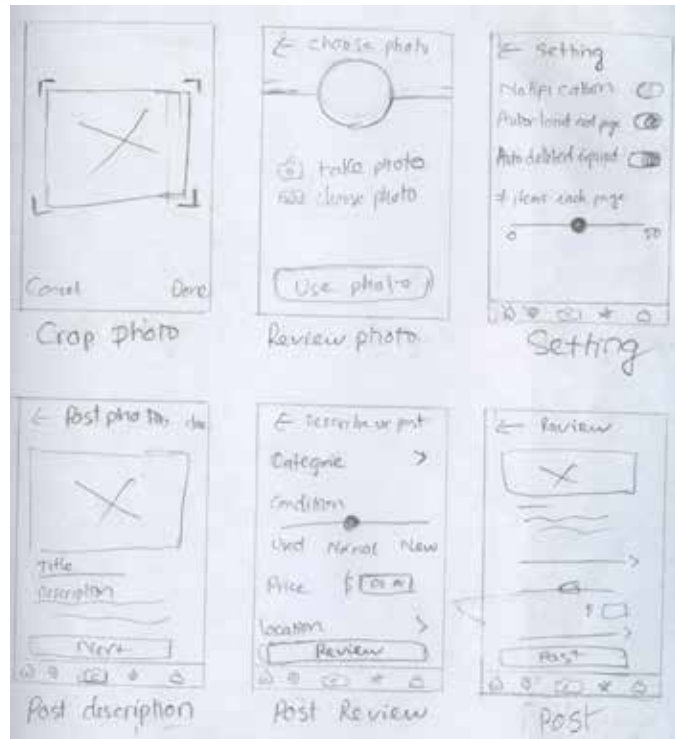 Cancel Done
Crop photo
← choose photo
take photo
choose photo
Use photo
Review photo
← Setting
Notification
Auto load page
Auto deleted
# items each page
0 50
Setting
← Post photo
Title
Description
Next
Post description
←
Categorie >
Condition
Used Normal New
Price $
Location >
Review
Post Review
← Review
>
$
>
Post
Post